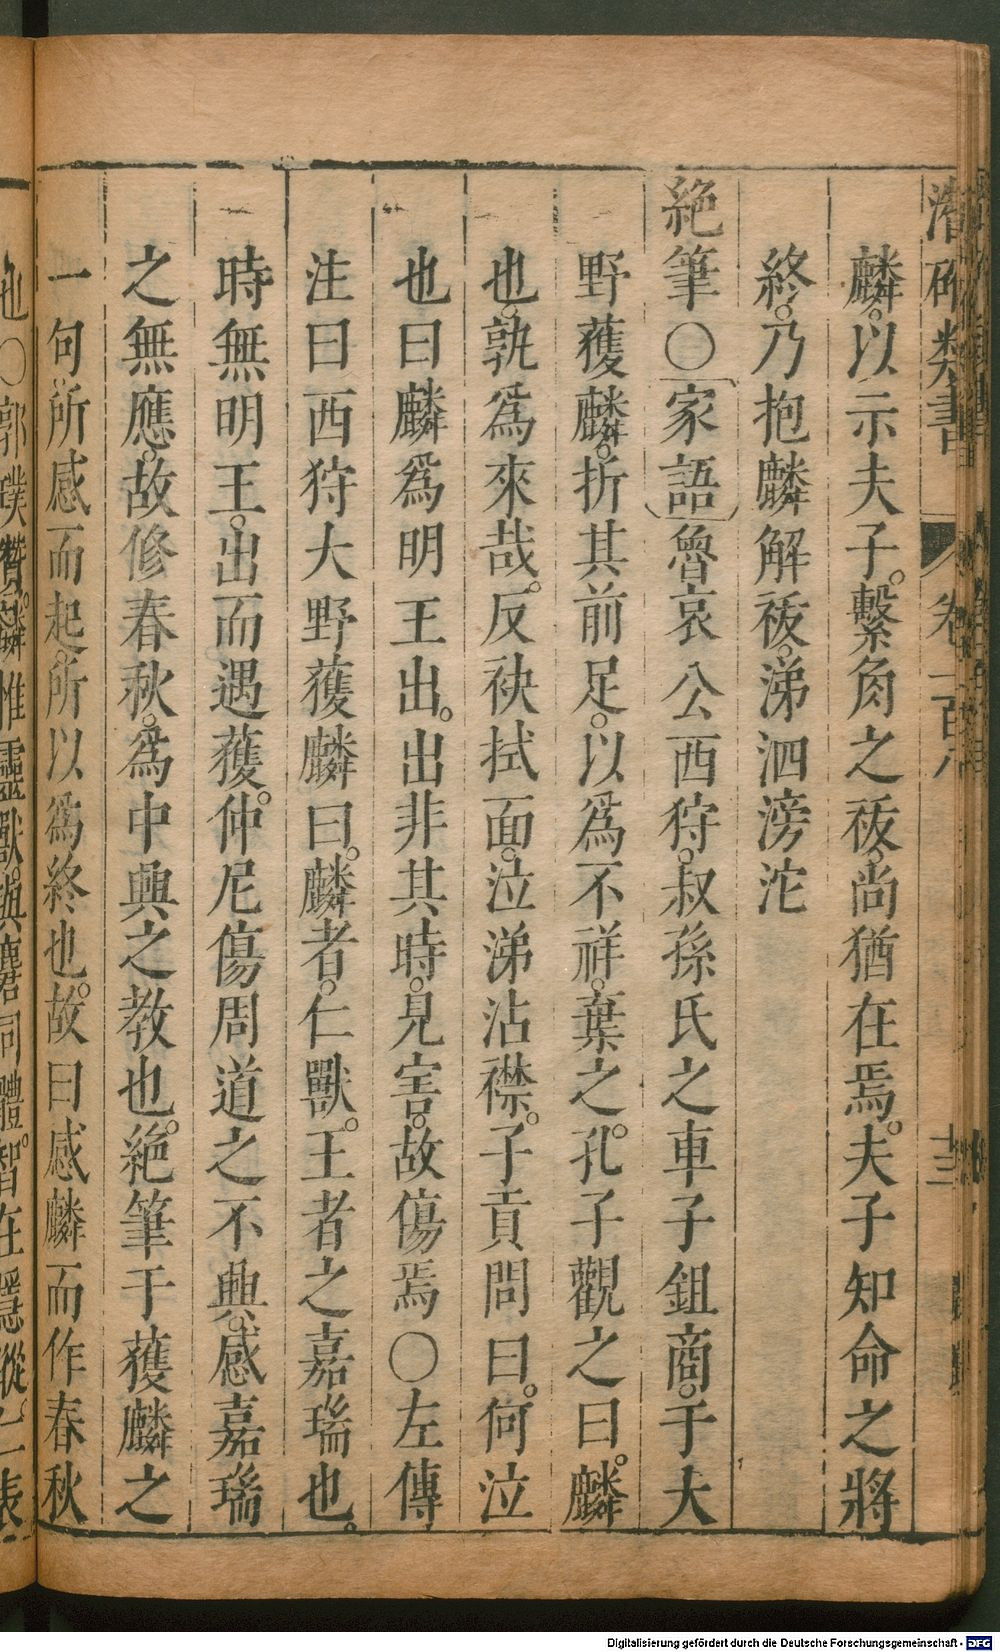 潛确類書 卷一百八 十三
麟。以示夫子。繫角之紱。尚猶在焉。夫子知命之將
終。乃抱麟解紱。涕泗滂沱
絕筆〇〔家語〕魯哀公西狩。叔孫氏之車子鉏商。于大
野獲麟。折其前足。以爲不祥。棄之。孔子觀之曰。麟
也。孰爲來哉。反袂拭面。泣涕沾襟。子貢問曰。何泣
也曰麟爲明王出。出非其時。見害。故傷焉〇左傳
注曰西狩大野獲麟曰。麟者。仁獸。王者之嘉瑞也。
時無明王。出而遇獲。仲尼傷周道之不興。感嘉瑞
之無應。故修春秋。爲中興之教也。絕筆于獲麟之
一句。所感而起。所以爲終也。故曰感麟而作春秋
也〇郭璞贊。麟惟靈獸。與麏同體。智在隱蹤。
Digitalisierung gefördert durch die Deutsche Forschungsgemeinschaft - DFG